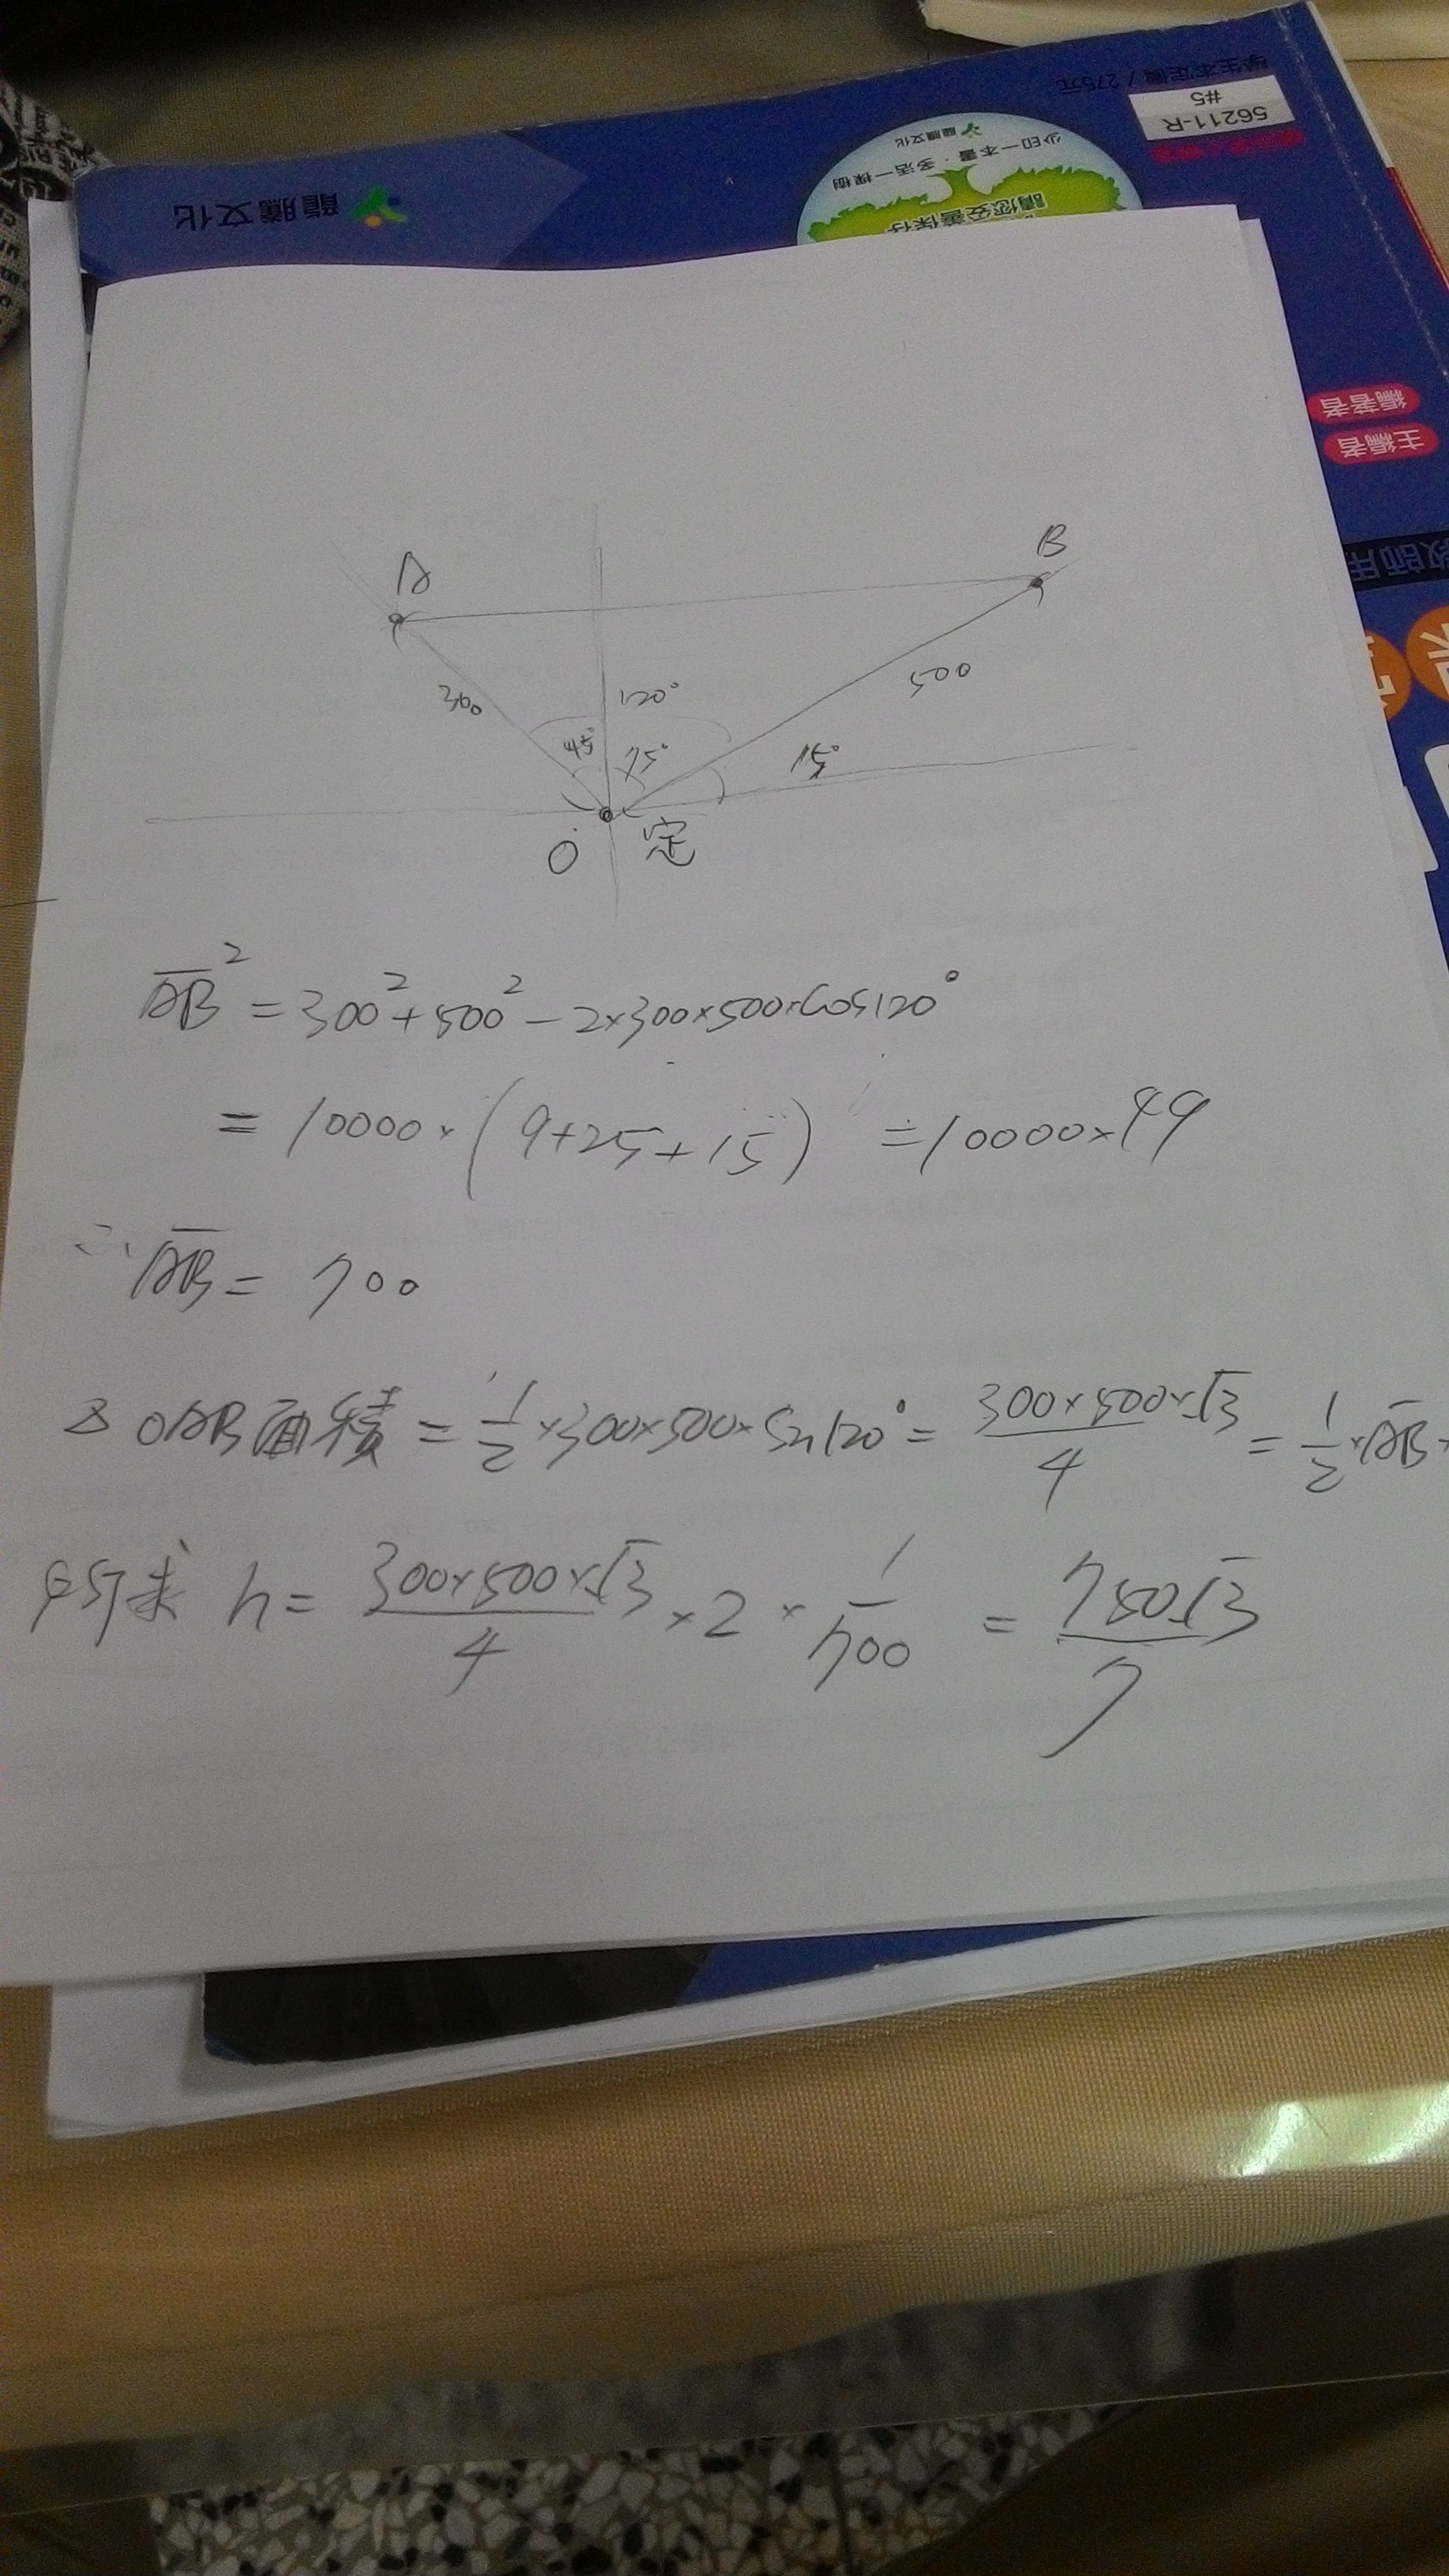 學生本定價 / 275元
56211-R
#5
龍騰文化
龍騰文化
少印一本書·多活一棵樹
請您妥善保存
編著者
主編者
A
B
300
120°
500
45°
75°
15°
O
定
AB̅² = 300² + 500² - 2×300×500×cos120°
= 10000×(9+25+15) = 10000×49
∴ AB̅ = 700
△OAB面積 = 1/2 ×300×500×sin120° = 300×500×√3/4 = 1/2 × AB̅ ×
所求 h = 300×500×√3/4 × 2 × 1/700 = 750√3/7